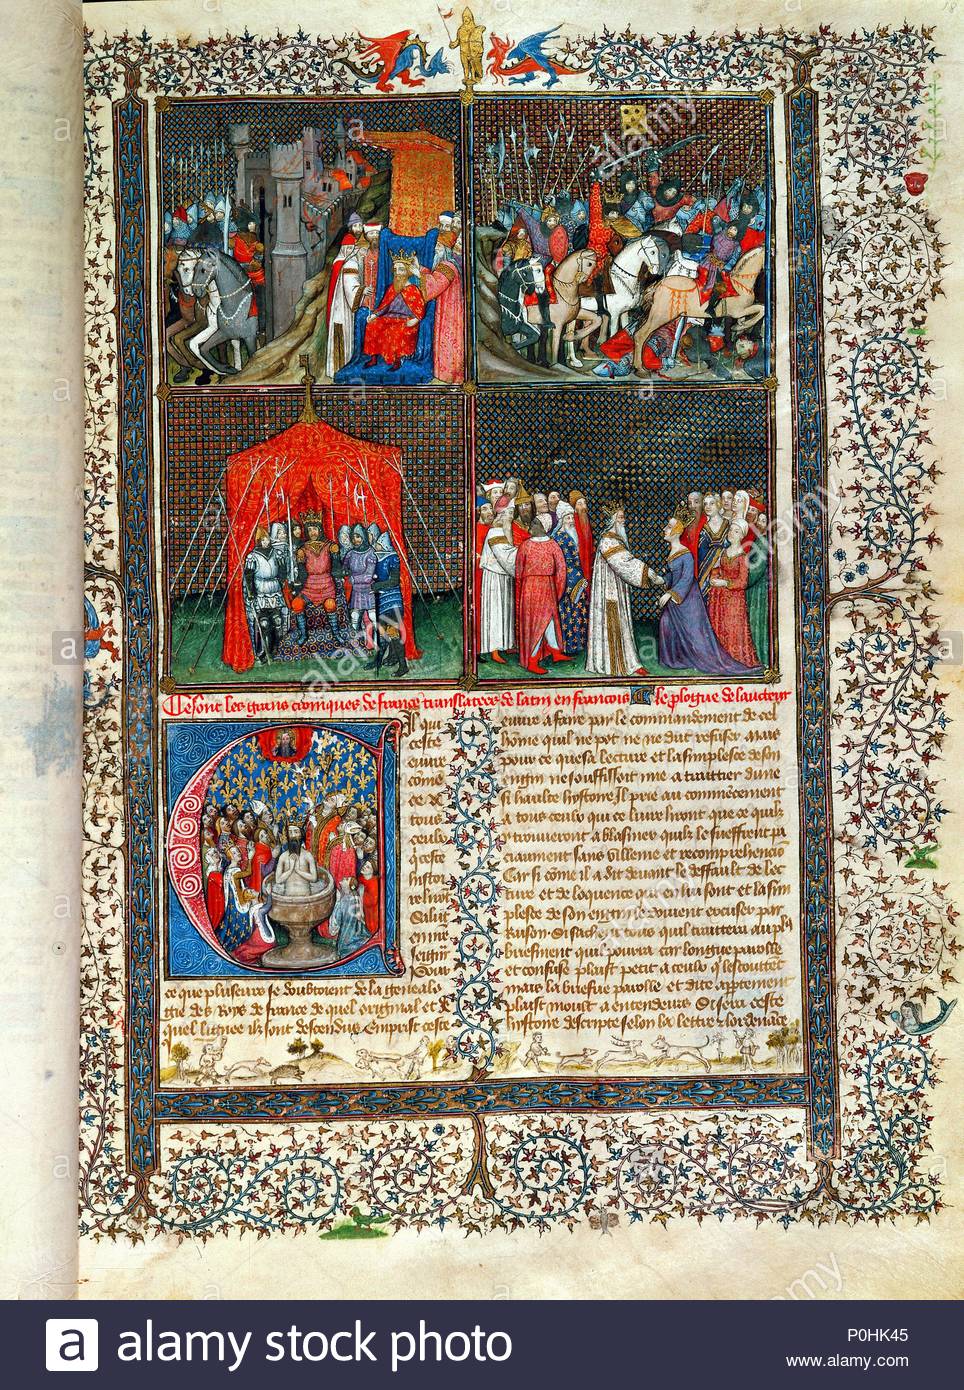 Ce sont les grans croniques de france translatees de latin en francois
le plogue de laucteur
Il qui
ceste
euure
cōme
ce
tous
ceulx
q̄ ceste
histor
relirōt
Salut
en nrē
seigñr
Pour
ce que pluseurs se doubtoient de la genealo
gie des Roys de france de quel original et de
quel lignee ilz sont descendus Emprist ceste
euure a faire par le commandement de cel
home quil ne pot ne ne dut refuser Mais
pour ce que sa lecture et la simplesce de son
engin ne souffissoit mie a traittier dune
si haulte hystoire Il prie au commēcement
a tous ceulx qui ce liure liront que ce quilz
y trouueront a blasmer quilz le sueffrent pa
ciaument sans villenie et reprehencio
Car si cōme il a dit deuant le deffault de lec
ture et de loquence qui en lui sont et la sim
plesce de son engin le doiuent excuser par
Raison Si sachent tous quil traittera du pl9
briefment quil pourra car longue parolle
et confuse plaist petit a ceulx q̄ lescoutent
mais la briefue parolle et dite apertement
plaist moult a entendeurs Si sera ceste
hystoire descripte selon la lettre et lordenāce
alamy stock photo
P0HK45
www.alamy.com